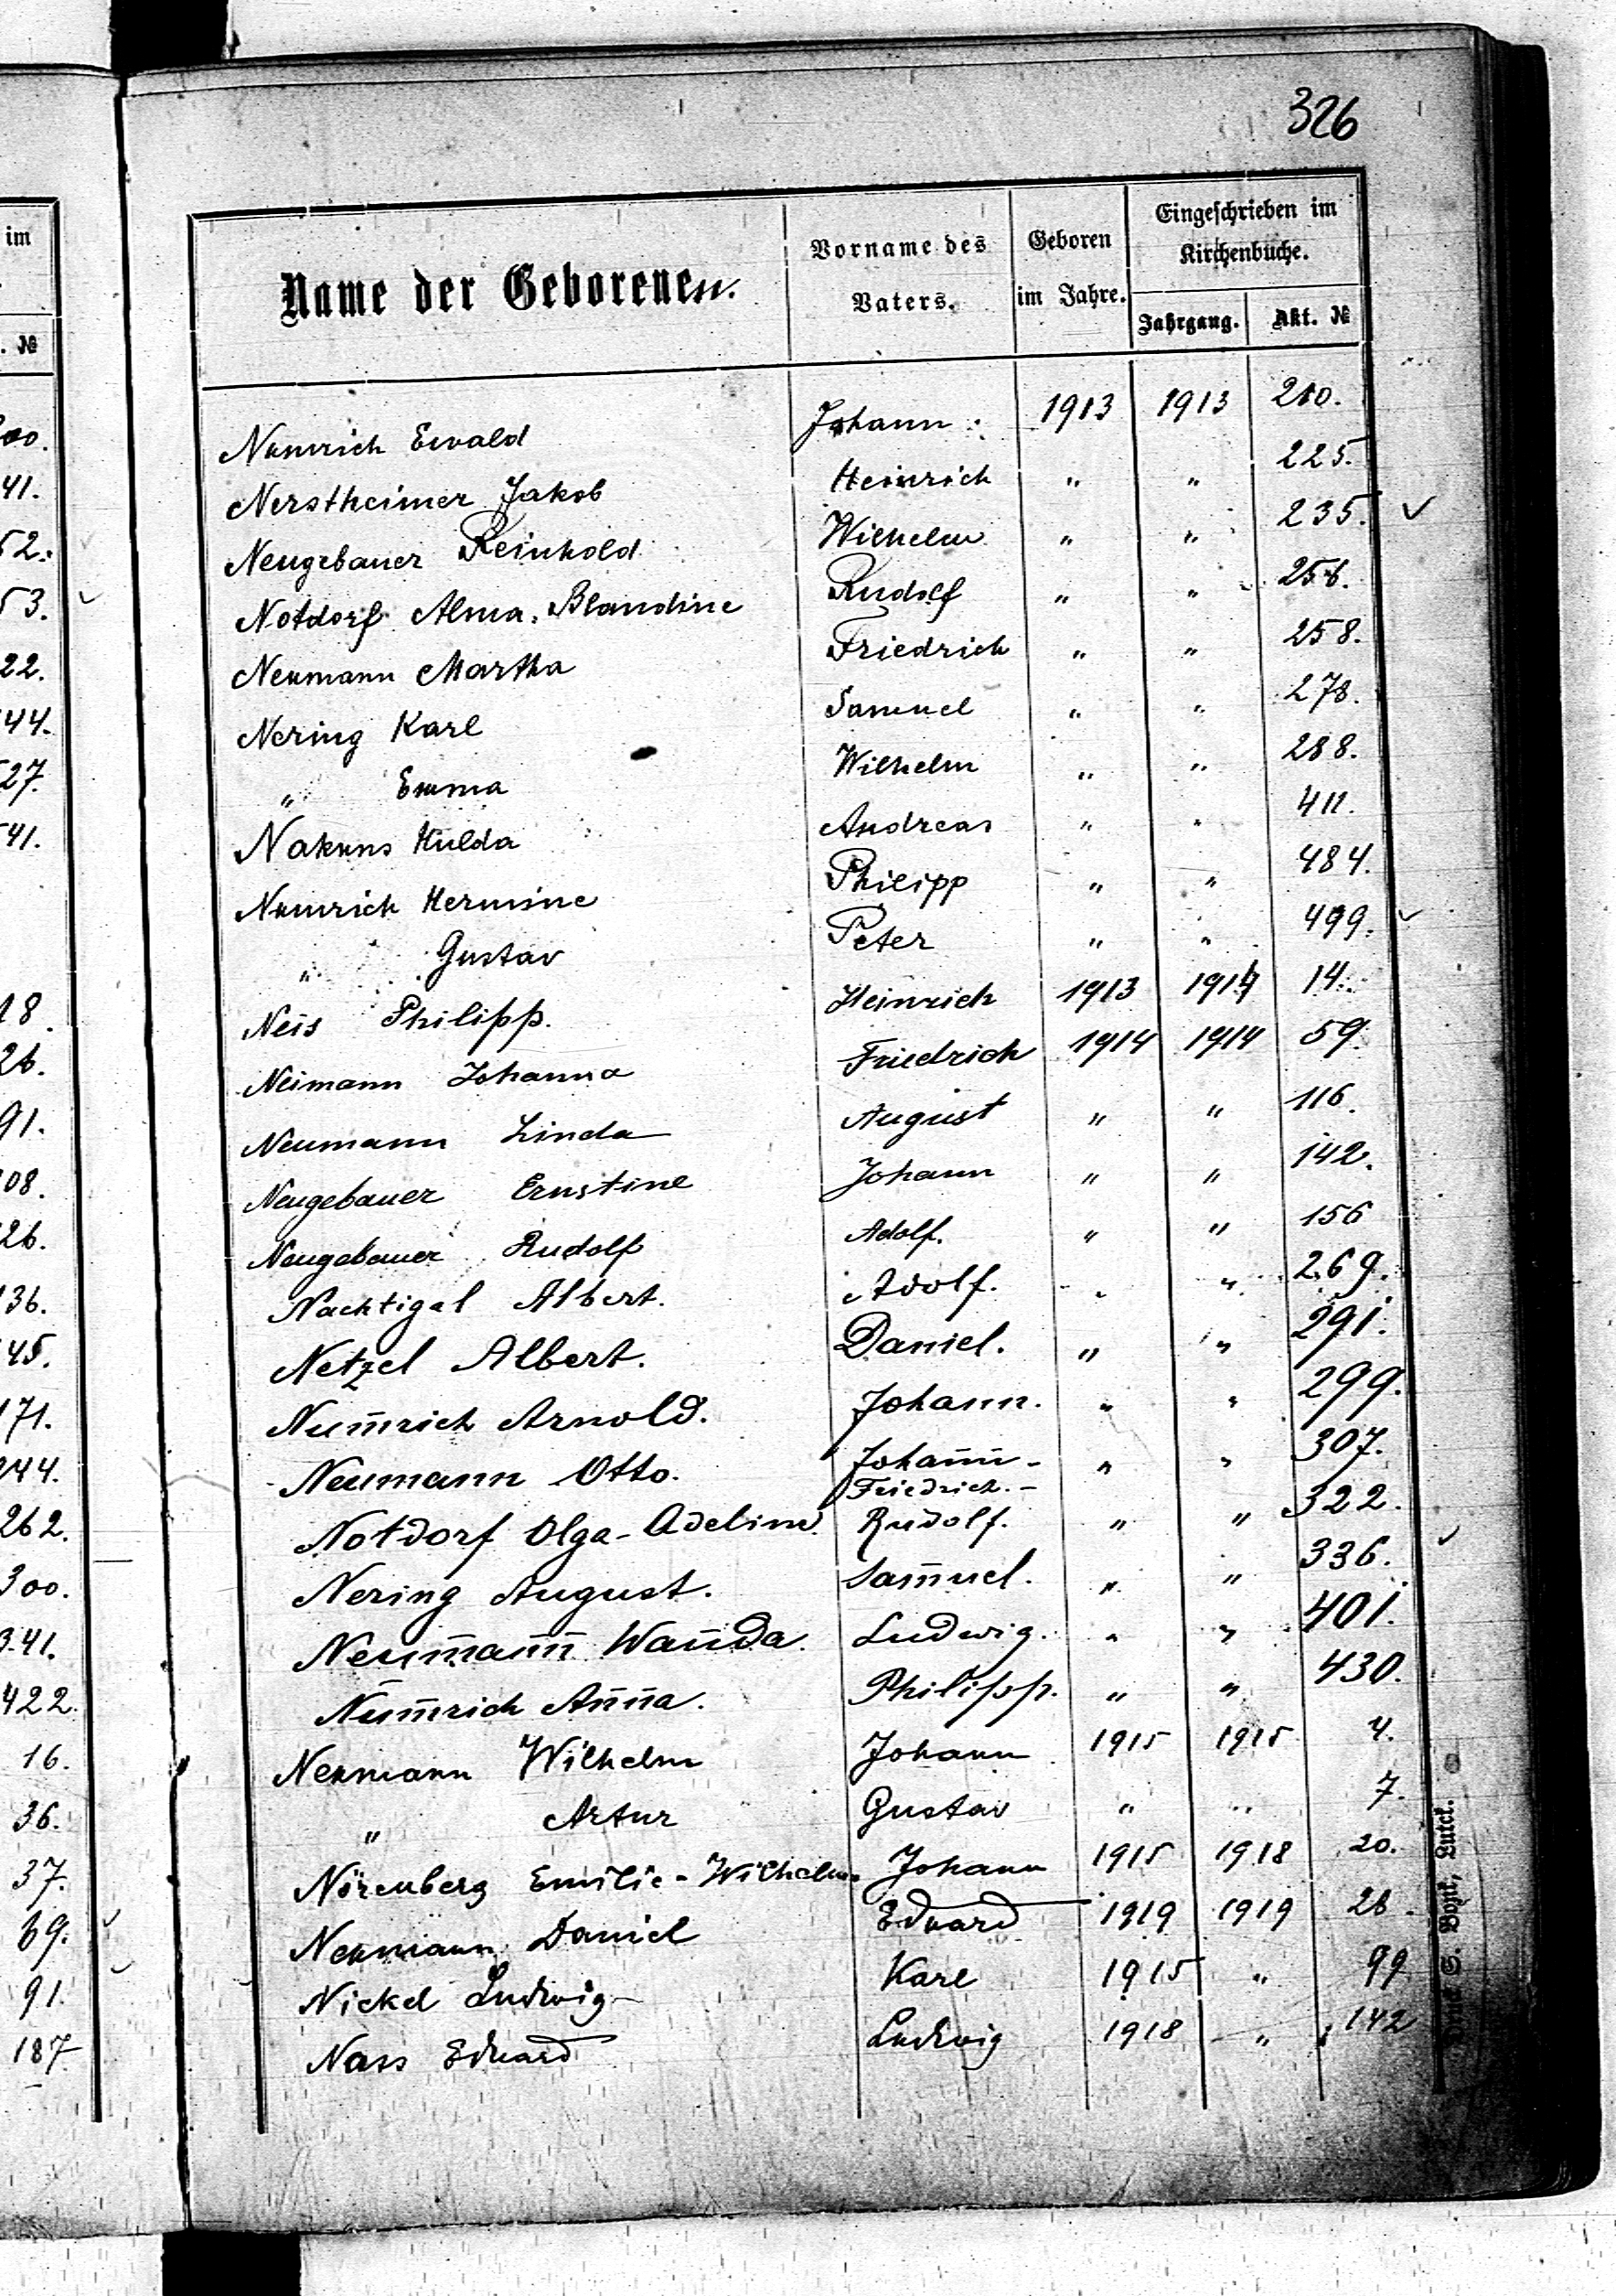 im
. №
41.
52.
53.
22.
44.
27.
41.
18.
26.
91.
08.
26.
136.
45.
171.
244.
262.
300.
341.
422.
16.
36.
37.
69.
91.
187
326
Name der Geborenen. Vorname des Vaters. Geboren im Jahre. Eingeschrieben im Kirchenbuche.
Jahrgang. Akt. №
Numrich Ewald Johann 1913 1913 210.
Nerstheimer Jakob Heinrich " " 225.
Neugebauer Reinhold Wilhelm " " 235. ✓
Notdorf Alma, Blandine Rudolf " " 256.
Neumann Martha Friedrich " " 258.
Nering Karl Samuel " " 278.
" Emma Wilhelm " " 288.
Nakuns Hulda Andreas " " 411.
Numrich Hermine Philipp " " 484.
" Gustav Peter " " 499. ✓
Neis Philipp. Heinrich 1913 1914 14.
Neimann Johanna Friedrich 1914 1914 59.
Neumann Linda August " " 116.
Neugebauer Ernstine Johann " " 142.
Neugebauer Rudolf Adolf. " " 156
Nachtigal Albert. Adolf. " " 269.
Netzel Albert. Daniel. " " 291.
Num̄rich Arnold. Johann. " " 299.
Neumann Otto. Johan̄n- Friedrich.- " " 307.
Notdorf Olga-Adeline. Rudolf. " " 322.
Nering August. Sam̄uel. " " 336. ✓
Neum̄an̄n Wan̄da. Ludwig. " " 401.
Num̄rich An̄na. Philipp. " " 430.
Neumann Wilhelm Johann 1915 1915 4.
" Artur Gustav " " 7.
Nörenberg Emilie-Wilhelm. Johann 1915 1918 20.
Neumann Daniel Eduard 1919 1919 26.
Nickel Ludwig Karl 1915 " 99
Nass Eduard Ludwig 1918 " 142
S. Bont, Lutzk.